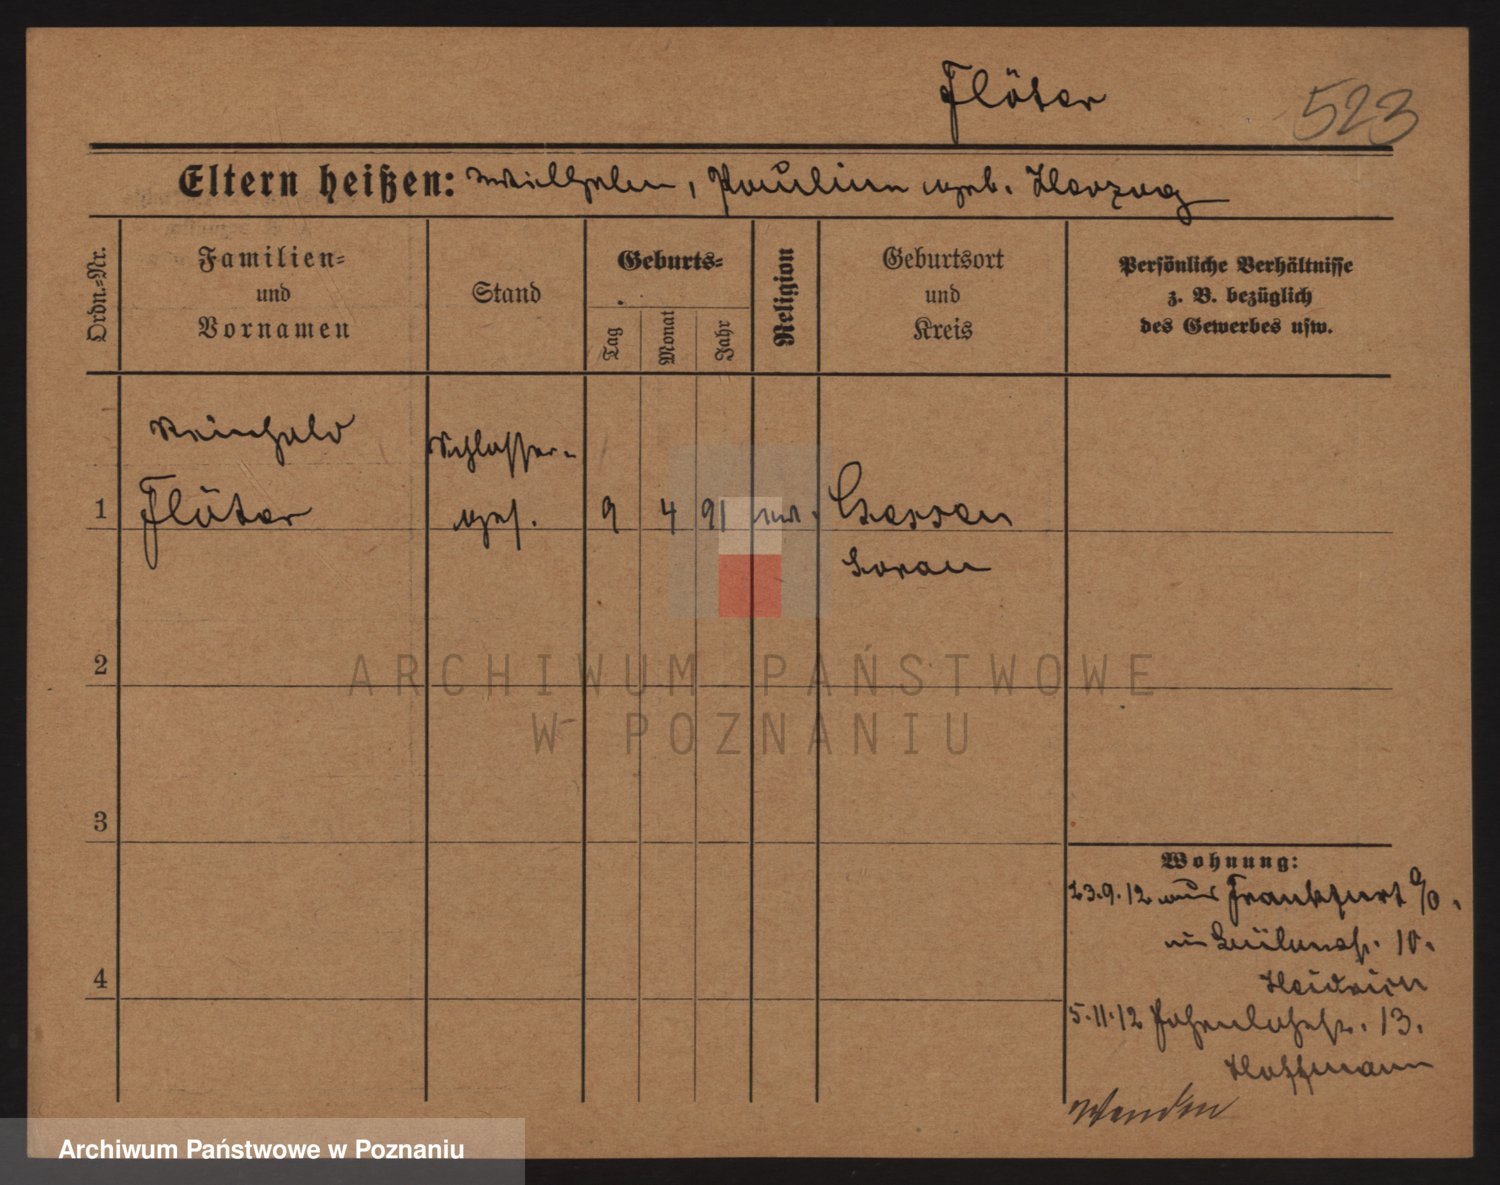 Flöter 523
Eltern heißen: Wilhelm, Pauline geb. Herzog
Ordn.=Nr.
Familien=
und
Vornamen
Stand
Geburts=
Tag
Monat
Jahr
Religion
Geburtsort
und
Kreis
Persönliche Verhältnisse
z. B. bezüglich
des Gewerbes usw.
Reinhold
Schlosser-
1 Flöter ges. 9 4 91
Sorau
2
ARCHIWUM PAŃSTWOWE
W POZNANIU
3
Wohnung:
23.9.12 aus Frankfurt a/O.
10.
4
5.11.12 Hohenlohestr. 13.
Hoffmann
Wenden
Archiwum Państwowe w Poznaniu